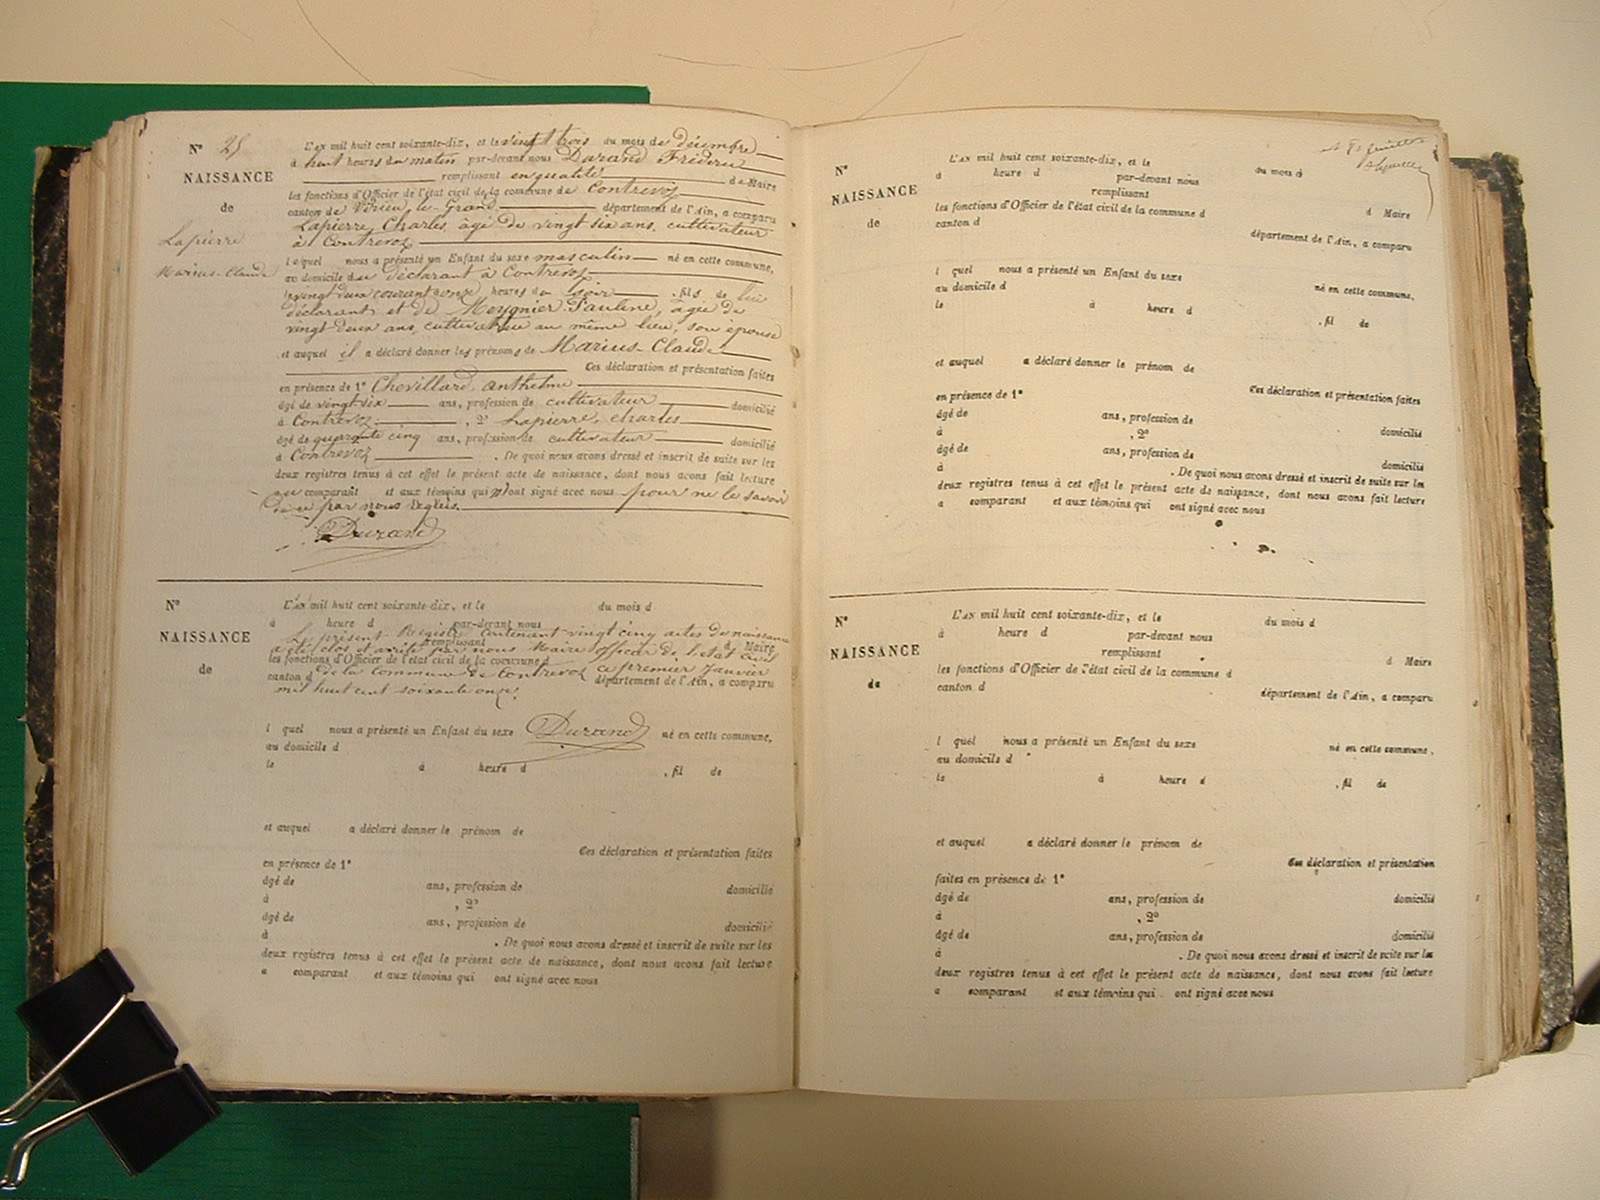 N° 25
NAISSANCE
de
Lapierre
Marius-Claude
L'AN mil huit cent soixante-dix, et le vingt trois du mois de décembre
à huit heures du matin par-devant nous Durand Frédéric
remplissant en qualité de Maire
les fonctions d'Officier de l'état civil de la commune de Contrevoz
canton de Virieu-le-Grand département de l'Ain, a comparu
Lapierre, Charles, âgé de vingt six ans, cultivateur
à Contrevoz
lequel nous a présenté un Enfant du sexe masculin né en cette commune,
au domicile du déclarant à Contrevoz
le vingt deux courant à onze heures du soir, fils de lui
déclarant et de Meysonier Pauline, âgée de
vingt-deux ans, cultivatrice au même lieu, son épouse
et auquel il a déclaré donner les prénoms de Marius-Claude
Ces déclaration et présentation faites
en présence de 1° Chevillard, anthelme
âgé de vingt-six ans, profession de cultivateur domicilié
à Contrevoz, 2° Lapierre, Charles
âgé de quarante cinq ans, profession de cultivateur domicilié
à Contrevoz. De quoi nous avons dressé et inscrit de suite sur les
deux registres tenus à cet effet le présent acte de naissance, dont nous avons fait lecture
au comparant et aux témoins qui n'ont signé avec nous pour ne le savoir
de ce par nous requis.
Durand
N°
NAISSANCE
de
L'AN mil huit cent soixante-dix, et le du mois d
à heure d par-devant nous
Le présent Registre contenant vingt cinq actes de naissance
remplissant d Maire
a été clos et arrêté par nous Maire officier de l'état civil
les fonctions d'Officier de l'état civil de la commune d
de la commune de Contrevoz ce premier Janvier
canton d département de l'Ain, a comparu
mil huit cent soixante onze.
l quel nous a présenté un Enfant du sexe né en cette commune,
Durand
au domicile d
le à heure d , fil de
et auquel a déclaré donner le prénom de
Ces déclaration et présentation faites
en présence de 1°
âgé de ans, profession de domicilié
à , 2°
âgé de ans, profession de domicilié
à . De quoi nous avons dressé et inscrit de suite sur les
deux registres tenus à cet effet le présent acte de naissance, dont nous avons fait lecture
a comparant et aux témoins qui ont signé avec nous
N°
NAISSANCE
de
L'AN mil huit cent soixante-dix, et le du mois d
à heure d par-devant nous
remplissant
d Maire
les fonctions d'Officier de l'état civil de la commune d
canton d département de l'Ain, a comparu
l quel nous a présenté un Enfant du sexe né en cette commune,
au domicile d
le à heure d , fil de
et auquel a déclaré donner le prénom de
Ces déclaration et présentation faites
en présence de 1°
âgé de ans, profession de domicilié
à , 2°
âgé de ans, profession de domicilié
à . De quoi nous avons dressé et inscrit de suite sur les
deux registres tenus à cet effet le présent acte de naissance, dont nous avons fait lecture
a comparant et aux témoins qui ont signé avec nous
N°
NAISSANCE
de
L'AN mil huit cent soixante-dix, et le du mois d
à heure d par-devant nous
remplissant
d Maire
les fonctions d'Officier de l'état civil de la commune d
canton d département de l'Ain, a comparu
l quel nous a présenté un Enfant du sexe né en cette commune,
au domicile d
le à heure d , fil de
et auquel a déclaré donner le prénom de
Ces déclaration et présentation
faites en présence de 1°
âgé de ans, profession de domicilié
à , 2°
âgé de ans, profession de domicilié
à . De quoi nous avons dressé et inscrit de suite sur les
deux registres tenus à cet effet le présent acte de naissance, dont nous avons fait lecture
a comparant et aux témoins qui ont signé avec nous